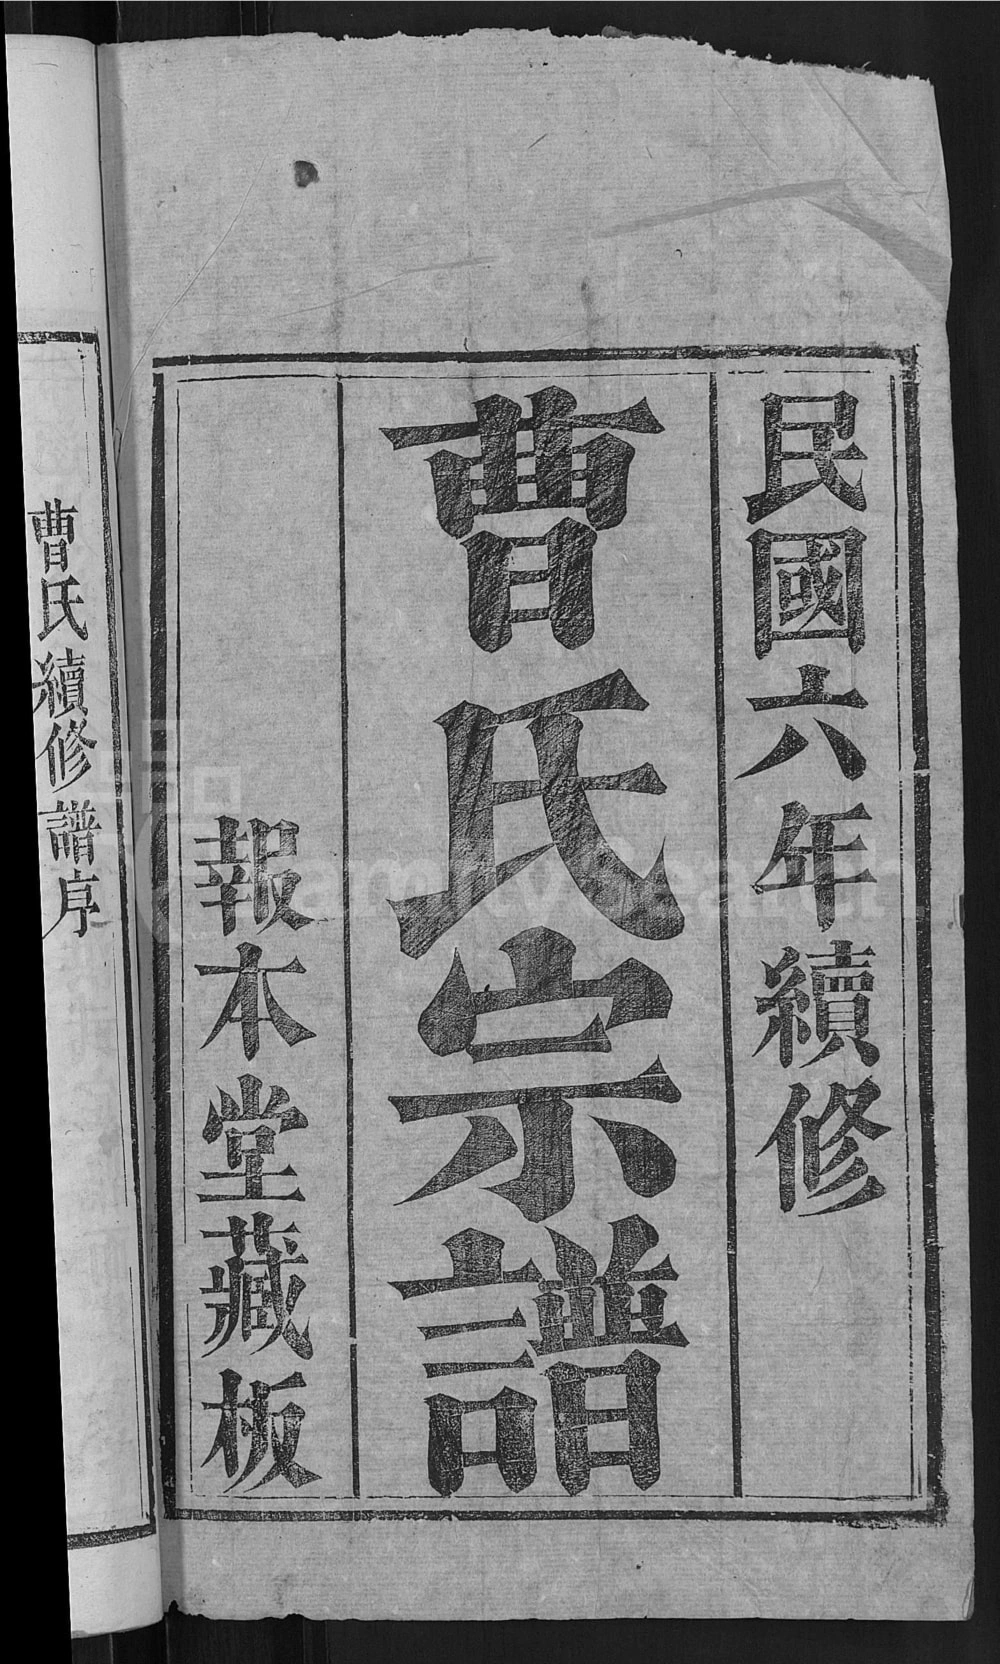 民國六年續修
曹氏宗譜
報本堂藏板
曹氏續修譜序
FamilySearch